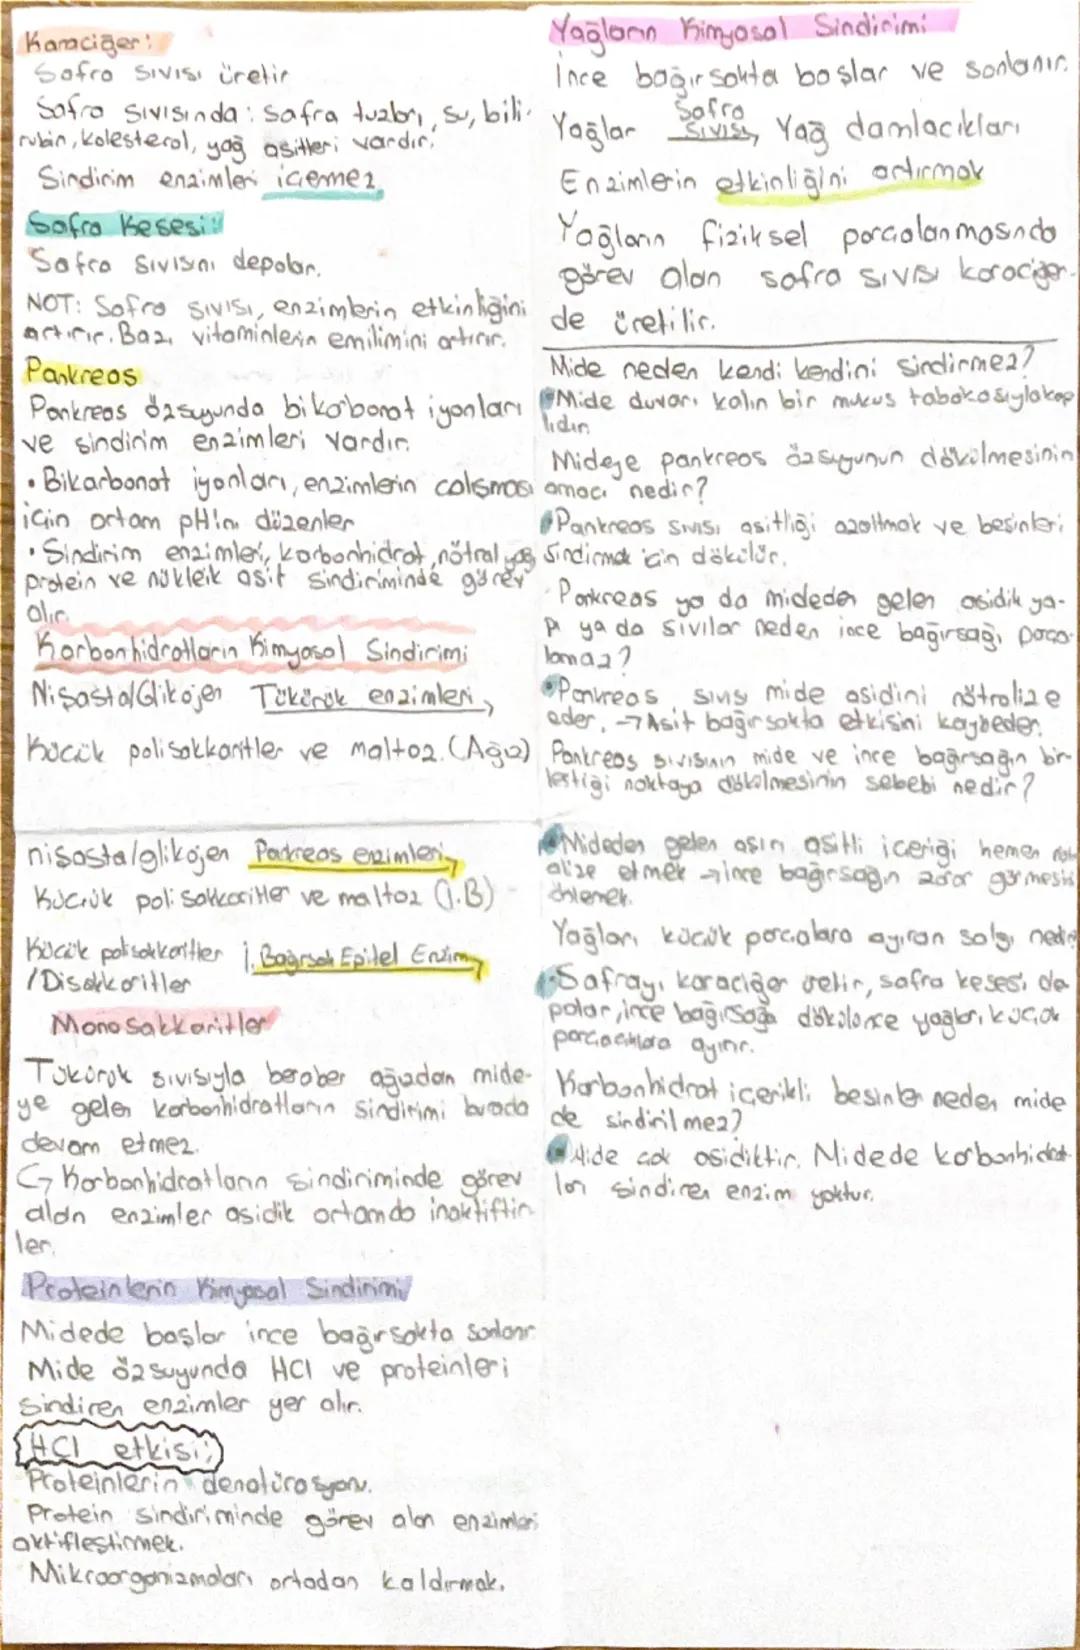 Karaciğer:
Safra sıvısı üretir
Safra sıvısında: safra tuzları, su, bili-
rubin, kolesterol, yağ asitleri vardır.
Sindirim enzimleri içermez.
Safra Kesesi:
Safra sıvısını depolar.
NOT: Safra sıvısı, enzimlerin etkinliğini
artırır. Bazı vitaminlerin emilimini artırır.
Pankreas
Pankreas özsuyunda bikarbonat iyonları
ve sindirim enzimleri vardır.
• Bikarbonat iyonları, enzimlerin çalışması
için ortam pH'ını düzenler
• Sindirim enzimleri, karbonhidrat, nötral yağ
protein ve nükleik asit sindiriminde görev
alır.
Karbonhidratların Kimyasal Sindirimi
Nişasta/Glikojen Tükürük enzimleri →
Küçük polisakkaritler ve maltoz. (Ağız)
nişasta/glikojen Pankreas enzimleri →
Küçük polisakkaritler ve maltoz (İ.B)
Küçük polisakkaritler İ. Bağırsak Epitel Enzim →
/Disakkaritler
Monosakkaritler
Tükürük sıvısıyla beraber ağızdan mide-
ye gelen karbonhidratların sindirimi burada
devam etmez.
↪ Karbonhidratların sindiriminde görev
alan enzimler asidik ortamda inaktiftir-
ler.
Proteinlerin Kimyasal Sindirimi
Midede başlar ince bağırsakta sonlanır
Mide özsuyunda HCl ve proteinleri
sindiren enzimler yer alır.
HCl etkisi;
Proteinlerin denatürasyonu.
Protein sindiriminde görev alan enzimleri
aktifleştirmek.
Mikroorganizmaları ortadan kaldırmak.
Yağların Kimyasal Sindirimi
İnce bağırsakta başlar ve sonlanır.
Yağlar Safra sıvısı → Yağ damlacıkları
Enzimlerin etkinliğini artırmak
Yağların fiziksel parçalanmasında
görev alan safra sıvısı karaciğer-
de üretilir.
Mide neden kendi kendini sindirmez?
• Mide duvarı kalın bir mukus tabakasıyla kap
lıdır.
Mideye pankreas özsuyunun dökülmesinin
amacı nedir?
• Pankreas sıvısı asitliği azaltmak ve besinleri
sindirmek için dökülür.
Pankreas ya da mideden gelen asidik ya-
pı ya da sıvılar neden ince bağırsağı parça-
lamaz?
• Pankreas sıvısı mide asidini nötralize
eder. → Asit bağırsakta etkisini kaybeder.
Pankreas sıvısının mide ve ince bağırsağın bir-
leştiği noktaya dökülmesinin sebebi nedir?
• Mideden gelen aşırı asitli içeriği hemen nötr
alize etmek → ince bağırsağın zarar görmesini
önlemek.
Yağları küçük parçalara ayıran salgı nedir
• Safrayı karaciğer üretir, safra kesesi de
polar, ince bağırsağa dökülünce yağları küçük
parçacıklara ayırır.
Karbonhidrat içerikli besinler neden mide
de sindirilmez?
• Mide çok asidiktir. Midede karbonhidrat-
ları sindiren enzim yoktur.